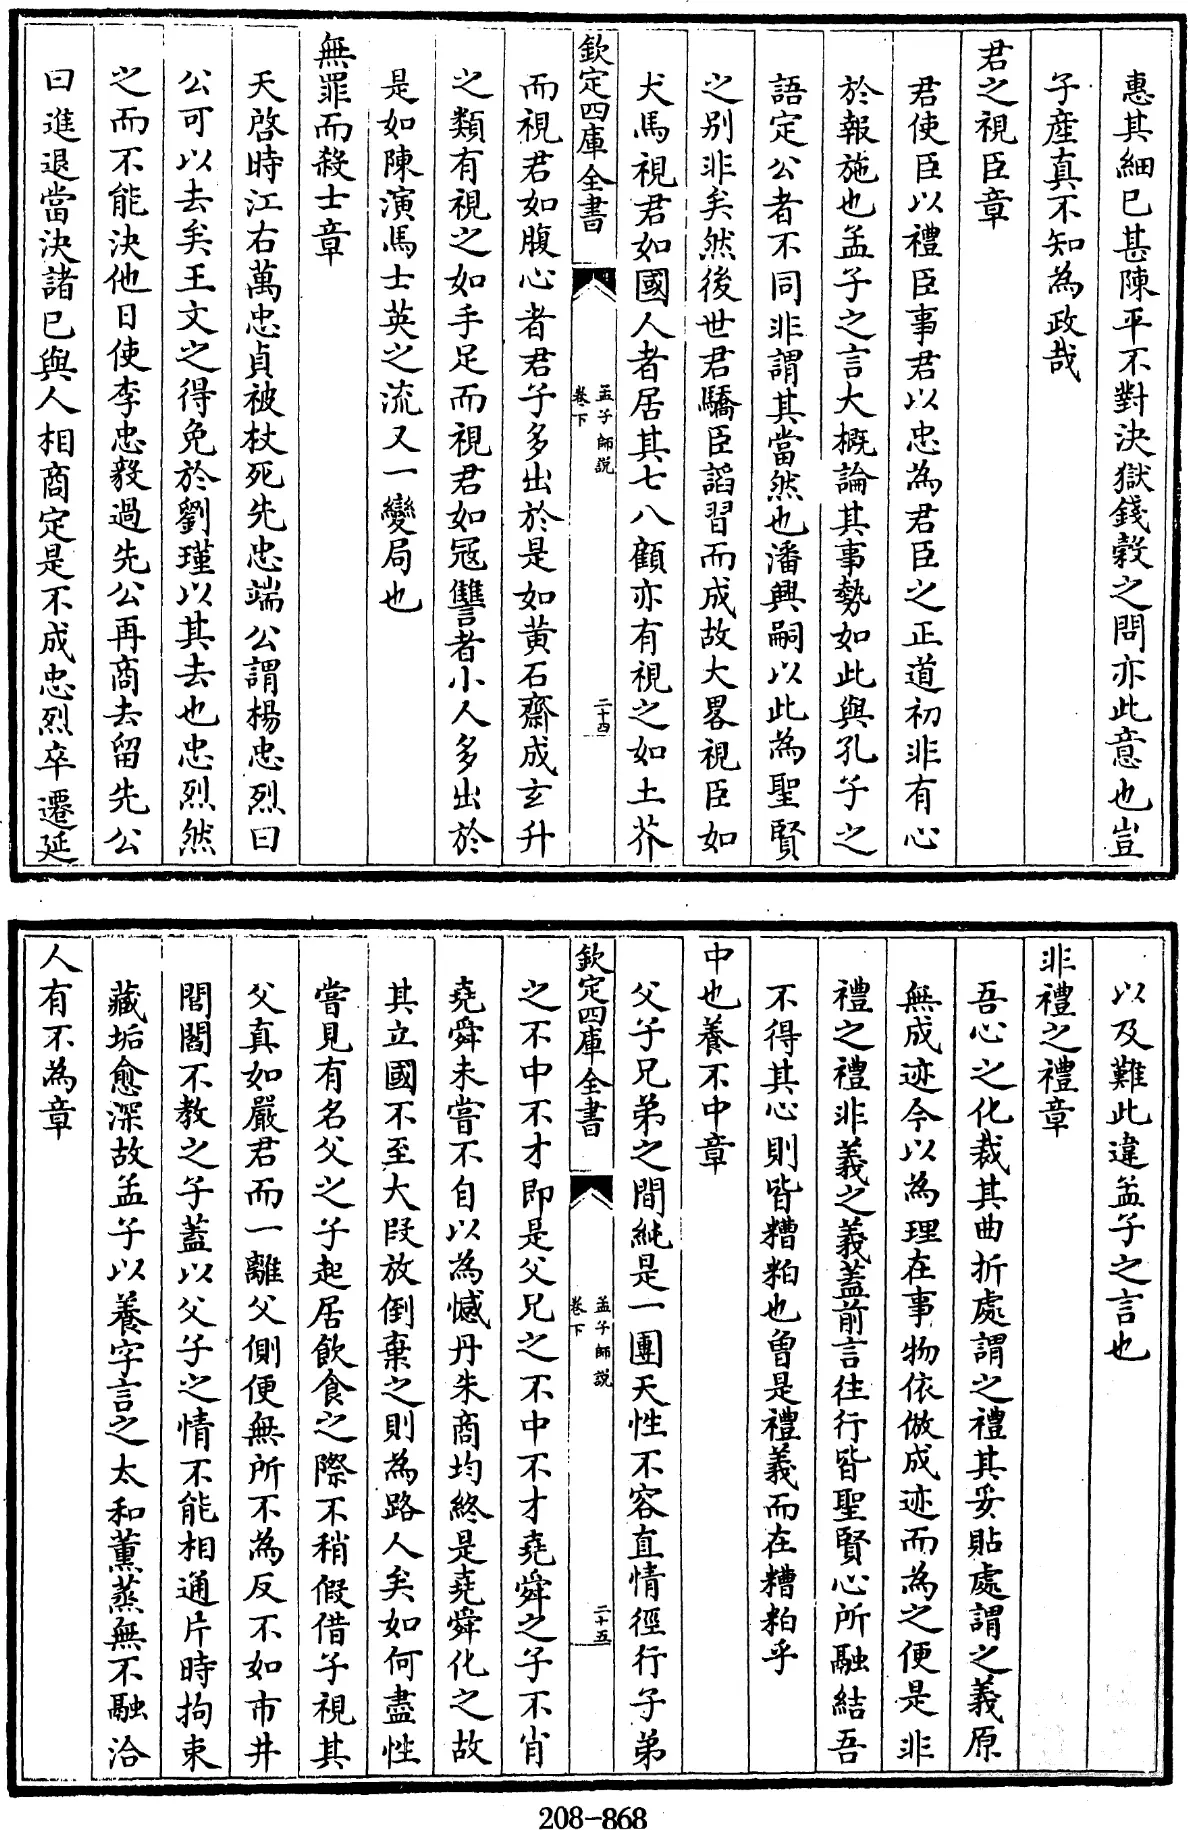 惠其細已甚陳平不對決獄錢穀之問亦此意也豈
子產真不知為政哉
君之視臣章
君使臣以禮臣事君以忠為君臣之正道初非有心
於報施也孟子之言大概論其事勢如此與孔子之
語定公者不同非謂其當然也潘興嗣以此為聖賢
之别非矣然後世君驕臣謟習而成故大畧視臣如
犬馬視君如國人者居其七八顧亦有視之如土芥
欽定四庫全書
孟子師說
卷下
二十四
而視君如腹心者君子多出於是如黄石齋成玄升
之類有視之如手足而視君如冦讐者小人多出於
是如陳演馬士英之流又一變局也
無罪而殺士章
天啓時江右萬忠貞被杖死先忠端公謂楊忠烈曰
公可以去矣王文之得免於劉瑾以其去也忠烈然
之而不能決他日使李忠毅過先公再商去留先公
曰進退當決諸已與人相商定是不成忠烈卒遷延
以及難此違孟子之言也
非禮之禮章
吾心之化裁其曲折處謂之禮其妥貼處謂之義原
無成迹今以為理在事物依倣成迹而為之便是非
禮之禮非義之義蓋前言往行皆聖賢心所融結吾
不得其心則皆糟粕也曾是禮義而在糟粕乎
中也養不中章
父子兄弟之間純是一團天性不容直情徑行子弟
欽定四庫全書
孟子師說
卷下
二十五
之不中不才即是父兄之不中不才堯舜之子不肖
堯舜未嘗不自以為憾丹朱商均終是堯舜化之故
其立國不至大叚放倒棄之則為路人矣如何盡性
嘗見有名父之子起居飲食之際不稍假借子視其
父真如嚴君而一離父側便無所不為反不如市井
閭閻不教之子蓋以父子之情不能相通片時拘束
藏垢愈深故孟子以養字言之太和薫蒸無不融洽
人有不為章
208-868